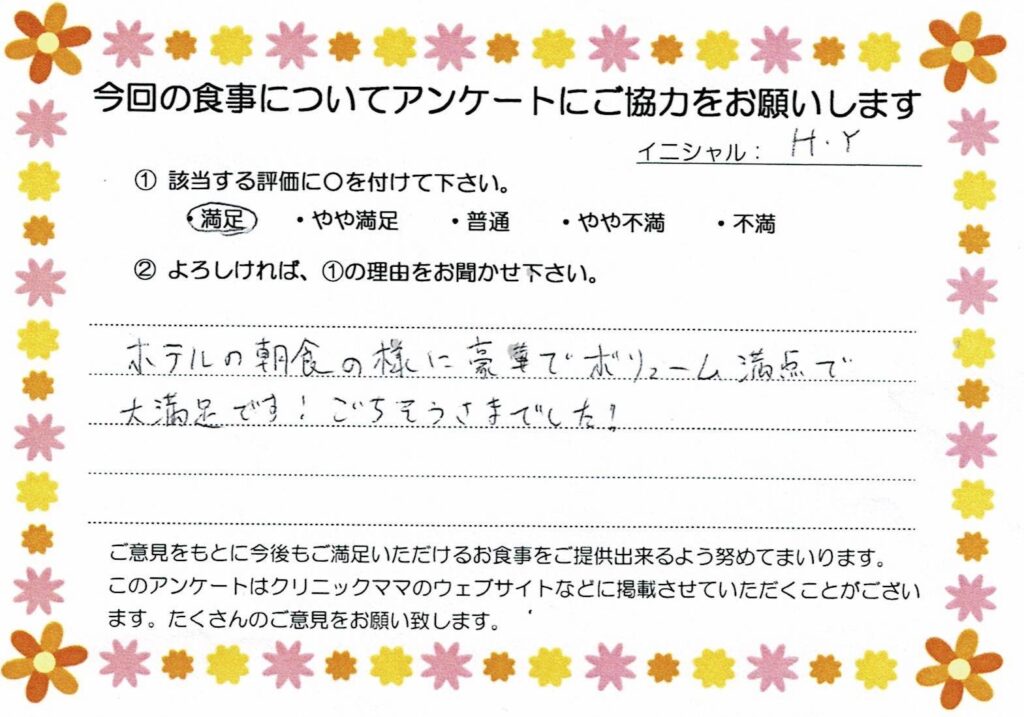 今回の食事についてアンケートにご協力をお願いします
イニシャル： H.Y
① 該当する評価に〇を付けて下さい。
・満足 ・やや満足 ・普通 ・やや不満 ・不満
② よろしければ、①の理由をお聞かせ下さい。
ホテルの朝食の様に豪華でボリューム満点で
大満足です！ごちそうさまでした！
ご意見をもとに今後もご満足いただけるお食事をご提供出来るよう努めてまいります。
このアンケートはクリニックママのウェブサイトなどに掲載させていただくことがござい
ます。たくさんのご意見をお願い致します。